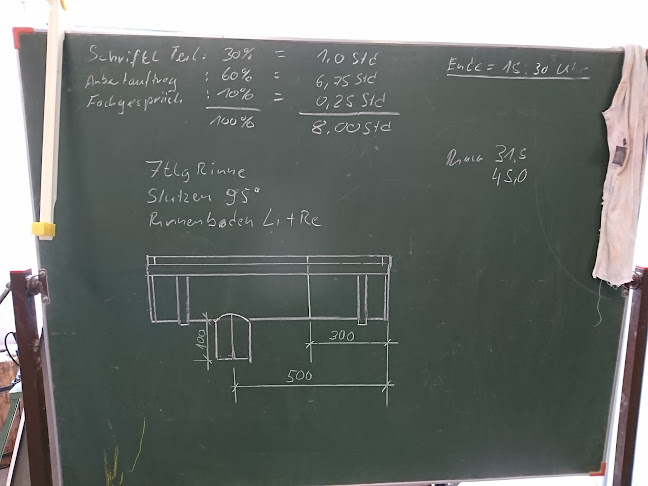 Schriftl Teil: 30% = 1,0 Std
Arbeitauftrag : 60% = 6,75 Std
Fachgespräch : 10% = 0,25 Std
100% 8,00 Std
Ende = 15:30 Uhr
31,5
45,0
7tlg Rinne
Stutzen 95°
Rinnenboden Li + Re
100
300
500